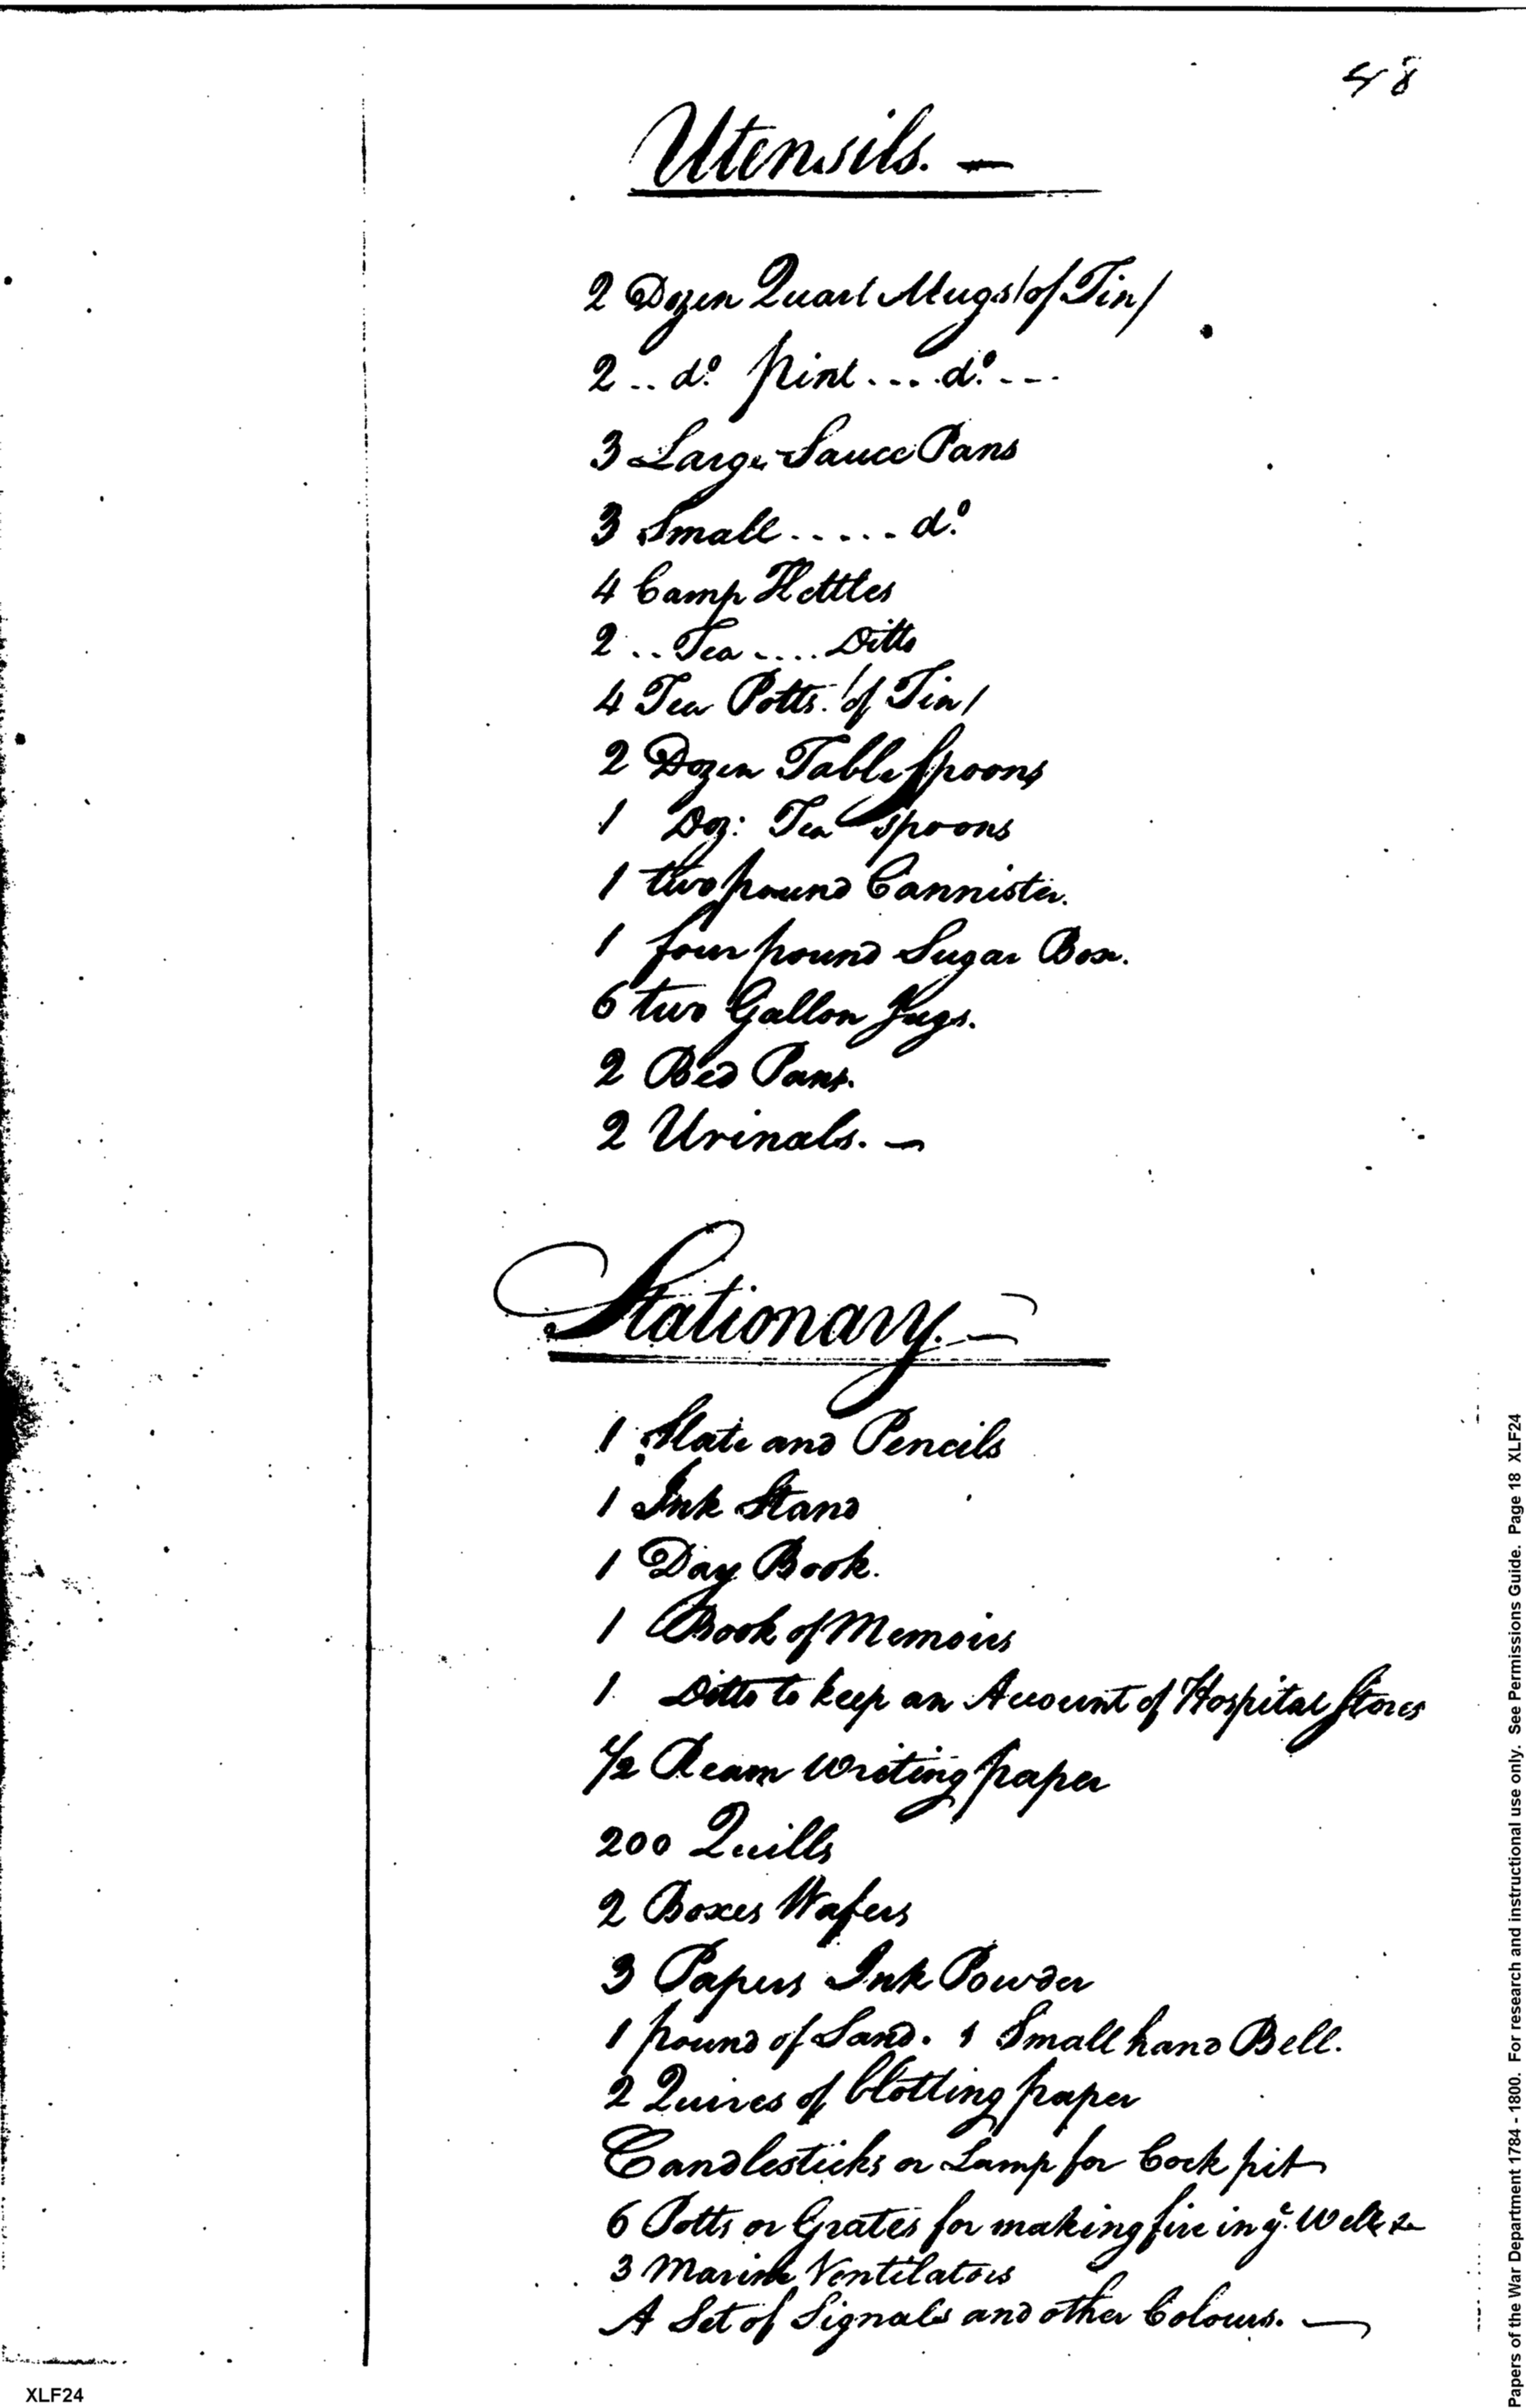 48
Utensils. —
2 Dozen Quart Mugs /of Tin/
2 .. do. pint .... do. ---
3 Large Sauce Pans
3 Small ..... do.
4 Camp Kettles
2 .. Tea .... Ditto
4 Tea Potts. /of Tin/
2 Dozen Table Spoons
1 Doz: Tea spoons
1 two pound Cannister.
1 four pound Sugar Box.
6 two Gallon Jugs.
2 Bed Pans.
2 Urinals. —
Stationary. —
1 Slate and Pencils
1 Ink Stand
1 Day Book.
1 Book of Memoirs
1 Ditto to keep an Account of Hospital Stores
1/2 Ream Writing paper
200 Quills
2 Boxes Wafers
3 Papers Ink Powder
1 pound of Sand. 1 Small hand Bell.
2 Quires of blotting paper
Candlesticks or Lamp for Cock pit
6 Potts or Grates for making fire in ye. Well &c
3 Marine Ventilators
A Set of Signals and other Colours. —
XLF24
Papers of the War Department 1784 - 1800. For research and instructional use only. See Permissions Guide. Page 18 XLF24